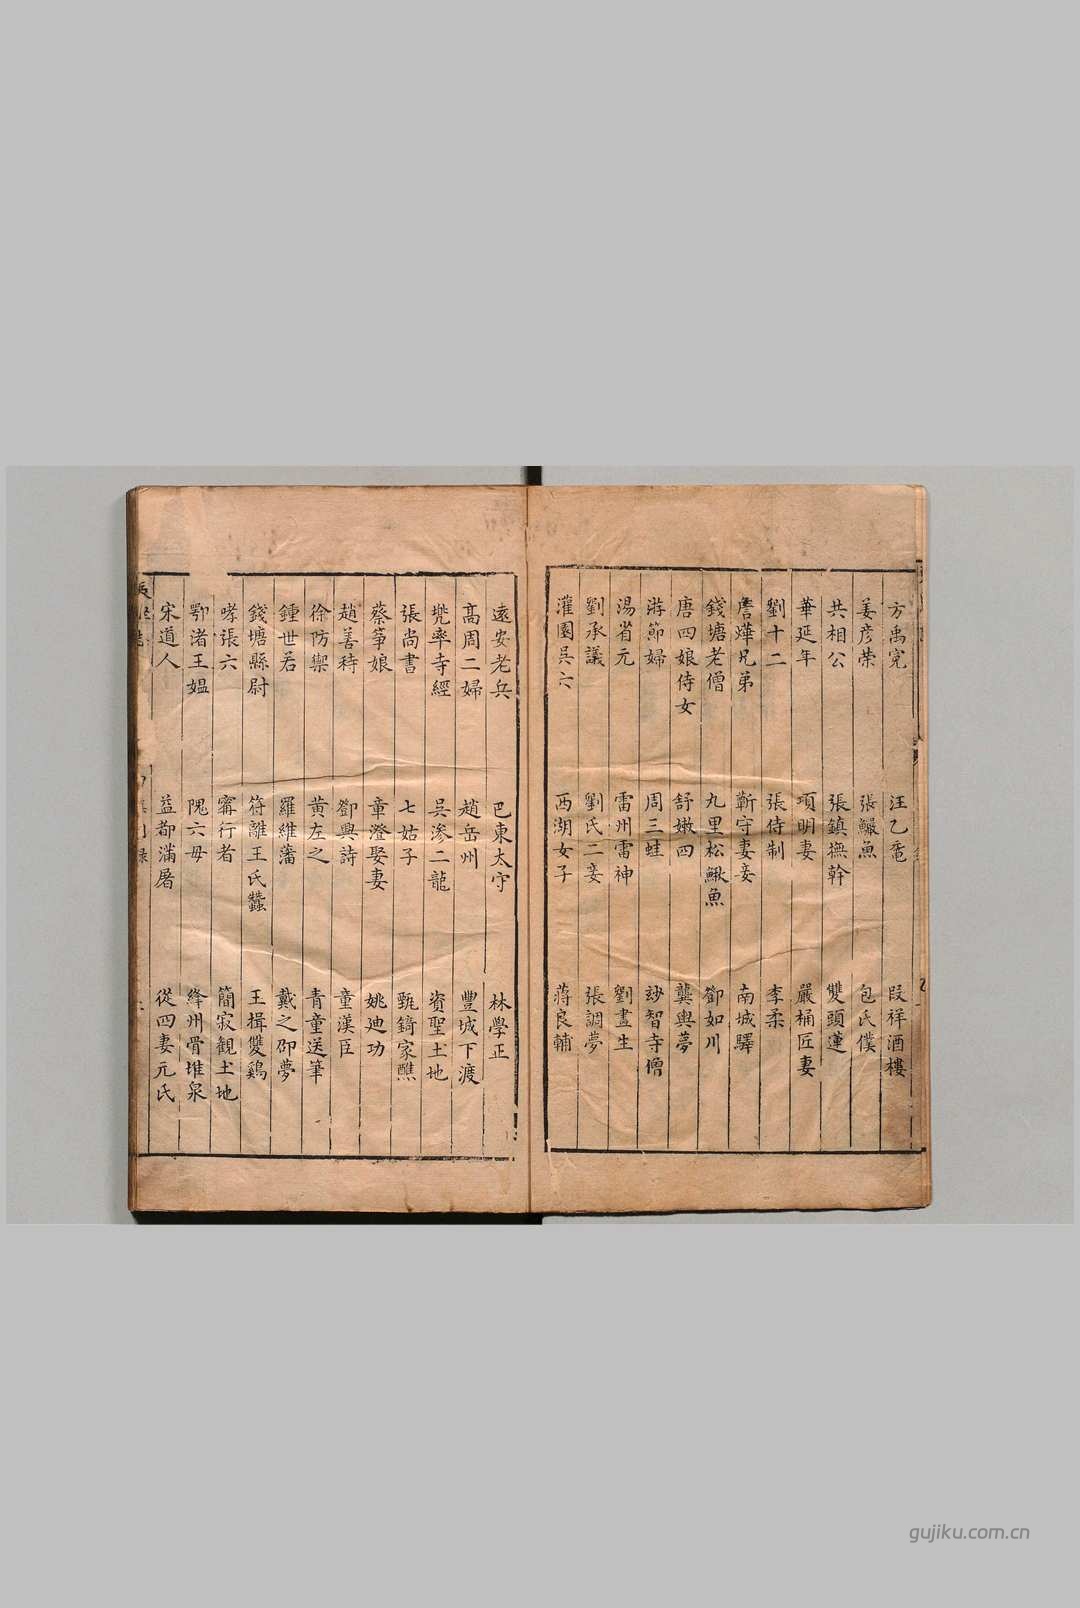 方禹冤　汪乙黿　段祥酒樓
姜彥荣　張鱺魚　包氏僕
共相公　張鎮撫幹　雙頭蓮
華延年　項明妻　嚴桶匠妻
劉十二　張待制　李柔
詹燁兄弟　靳守妻妾　南城驛
錢塘老僧　九里松鰍魚　鄧如川
唐四娘侍女　舒嫩四　龔輿夢
游節婦　周三蛙　妙智寺僧
湯省元　雷州雷神　劉畫生
劉承議　劉氏二妾　張調夢
灌園吳六　西湖女子　蔣良輔
遠安老兵　巴東太守　林學正
高周二婦　趙岳州　豐城下渡
兜率寺經　吳滲二龍　資聖土地
張尚書　七姑子　甄錡家醮
蔡筝娘　章澄娶妻　姚迪功
趙善待　鄧興詩　童漢臣
徐防禦　黄左之　青童送筆
鍾世若　羅維藩　戴之邵夢
錢塘縣尉　符離王氏蠶　王揖雙鷄
哮張六　甯行者　簡寂觀土地
鄂渚王媪　隗六母　絳州骨堆泉
宋道人　益都滿屠　從四妻元氏
gujiku.com.cn